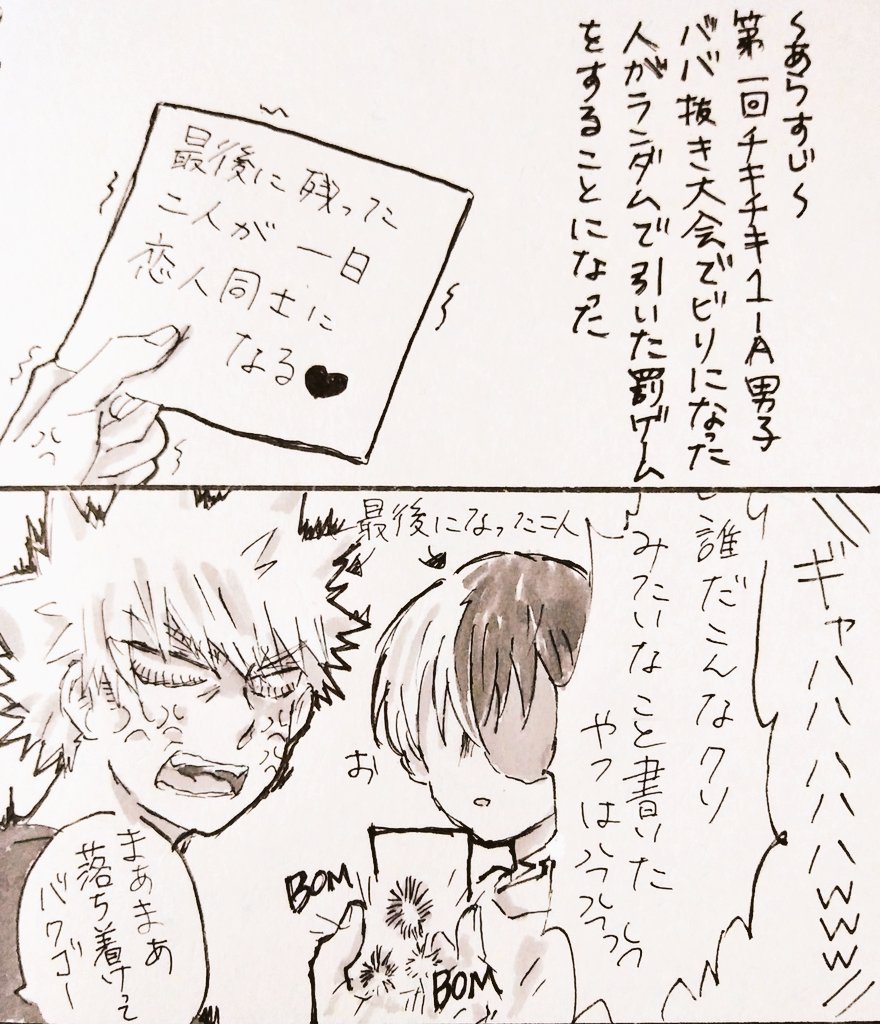 ～あらすじ～
第一回チキチキ1-A男子
ババ抜き大会でビリになった
人がランダムで引いた罰ゲーム
をすることになった
最後に残った
二人が一日
恋人同士に
なる♥
ギャハハハハハwww
誰だこんなクソ
みたいなこと書いた
やつは
最後になった二人
お
BOM
BOM
まあまあ
落ち着けって
バクゴー